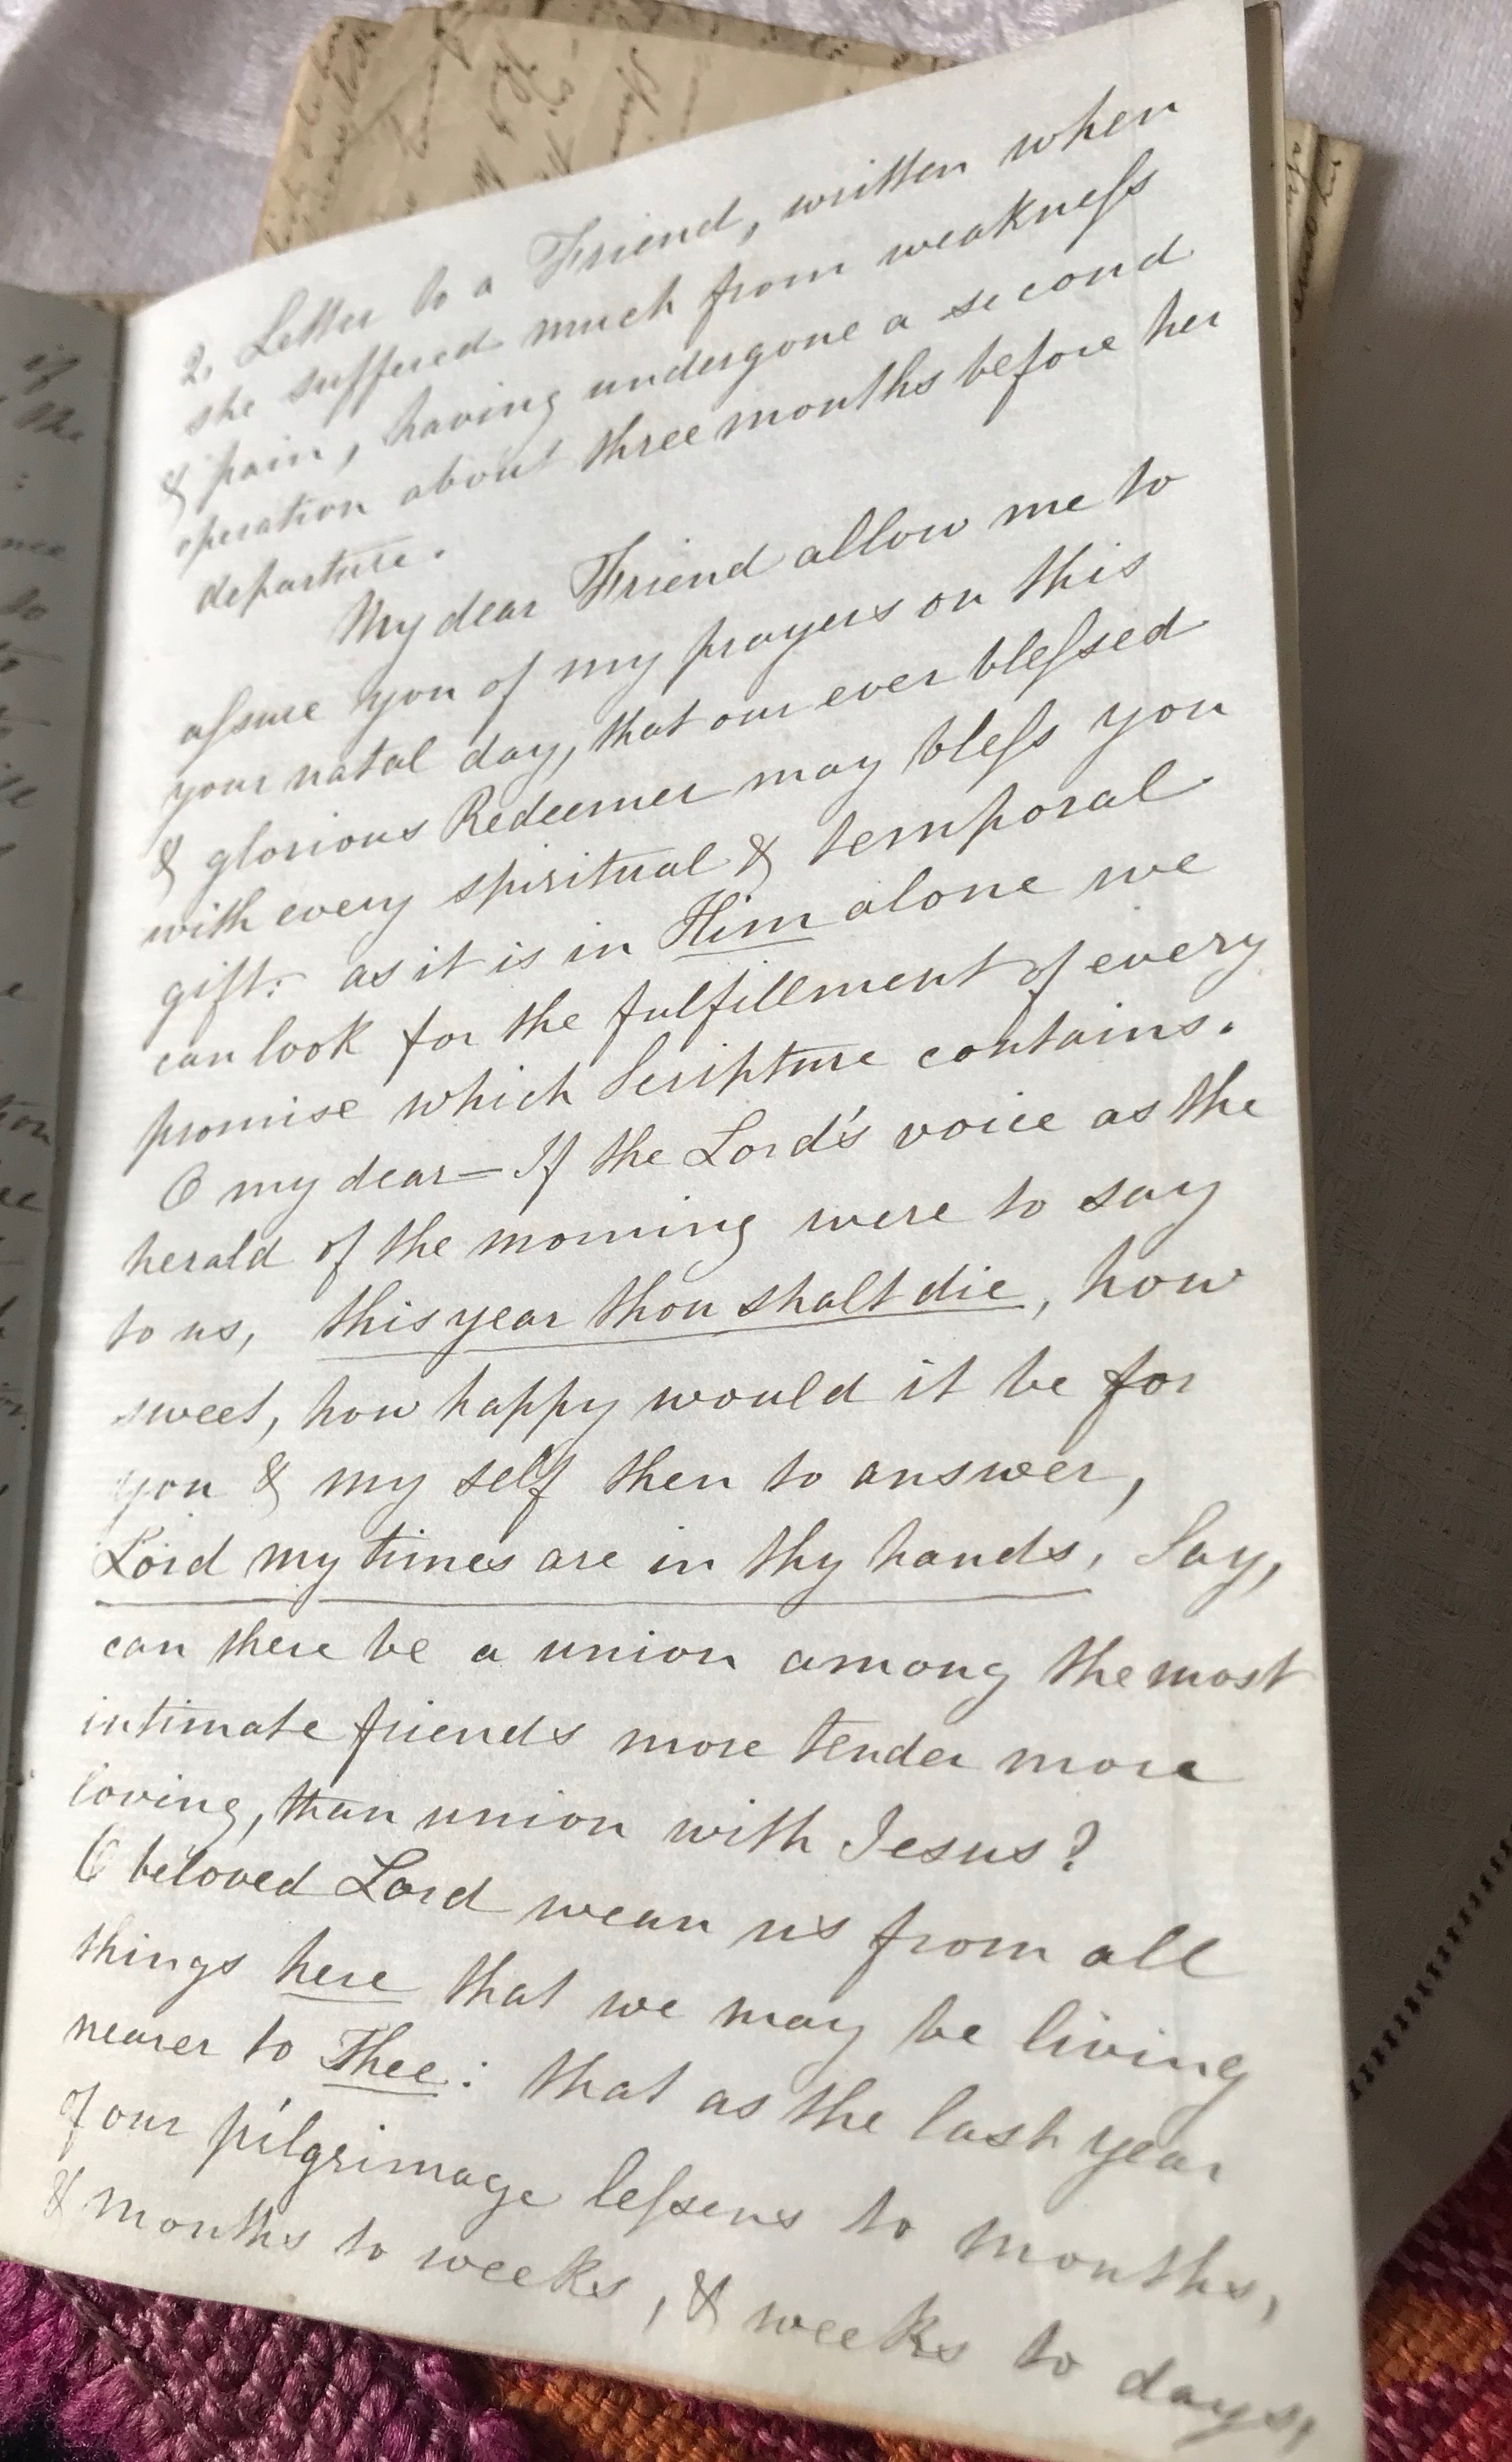 2. Letter to a Friend, written when
she suffered much from weakneſs
& pain, having undergone a second
operation about three months before her
departure.
My dear Friend allow me to
aſsure you of my prayers on this
your natal day, that our ever bleſsed
& glorious Redeemer may bleſs you
with every spiritual & temporal
gift: as it is in Him alone we
can look for the fulfillment of every
promise which Scripture contains.
O my dear — If the Lord's voice as the
herald of the morning were to say
to us, this year thou shalt die, how
sweet, how happy would it be for
you & my self then to answer,
Lord my times are in thy hands, Say,
can there be a union among the most
intimate friends more tender more
loving, than union with Jesus?
O beloved Lord wean us from all
things here that we may be living
nearer to Thee: that as the last year
of our pilgrimage leſsens to months,
& months to weeks, & weeks to days,